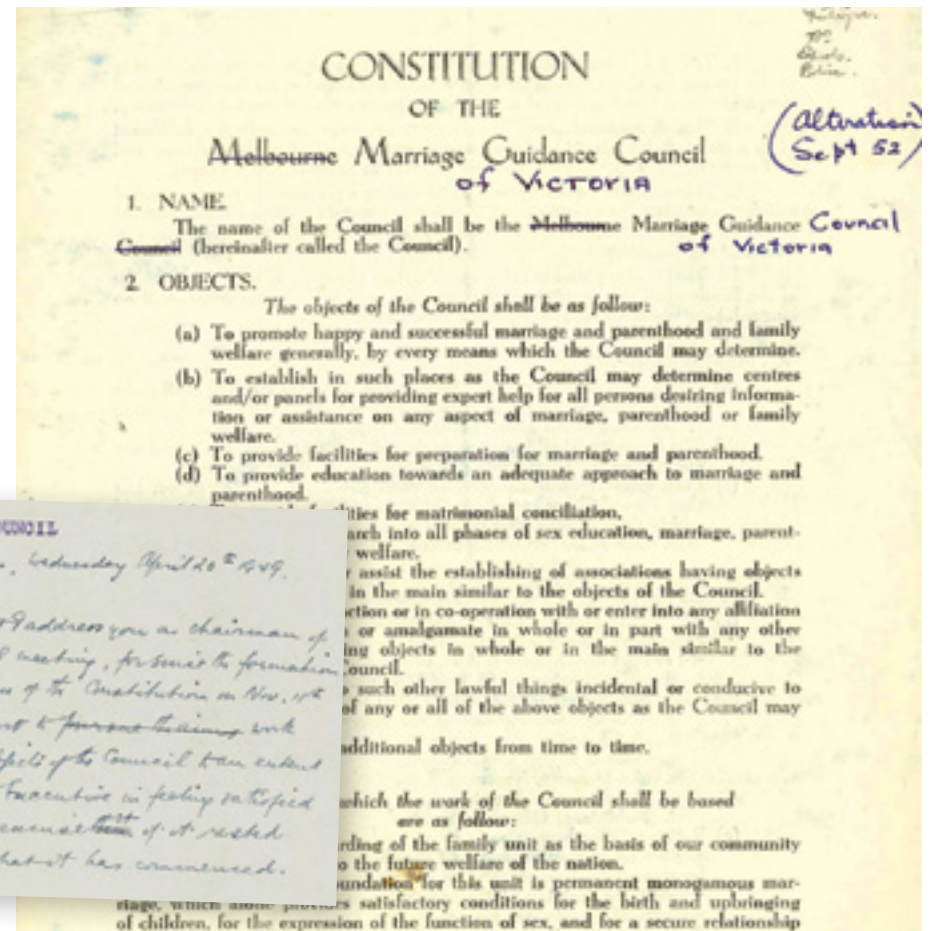 CONSTITUTION
OF THE
(Alteration
Sept 52)
Melbourne Marriage Guidance Council
of VICTORIA
1. NAME.
The name of the Council shall be the Melbourne Marriage Guidance Council
Council (hereinafter called the Council). of Victoria
2. OBJECTS.
The objects of the Council shall be as follow:
(a) To promote happy and successful marriage and parenthood and family
welfare generally, by every means which the Council may determine.
(b) To establish in such places as the Council may determine centres
and/or panels for providing expert help for all persons desiring informa-
tion or assistance on any aspect of marriage, parenthood or family
welfare.
(c) To provide facilities for preparation for marriage and parenthood.
(d) To provide education towards an adequate approach to marriage and
parenthood.
ities for matrimonial conciliation.
arch into all phases of sex education, marriage, parent-
welfare.
assist the establishing of associations having objects
in the main similar to the objects of the Council.
ction or in co-operation with or enter into any affiliation
or amalgamate in whole or in part with any other
ing objects in whole or in the main similar to the
Council.
such other lawful things incidental or conducive to
of any or all of the above objects as the Council may
additional objects from time to time.
which the work of the Council shall be based
are as follow:
rding of the family unit as the basis of our community
o the future welfare of the nation.
oundation for this unit is permanent monogamous mar-
riage, which alone provides satisfactory conditions for the birth and upbringing
of children, for the expression of the function of sex, and for a secure relationship
OUNCIL
Wednesday April 20th 1949.
I address you as chairman of
meeting, for since the formation
of the Constitution on Nov.
to pursue the aims work
of the Council to an extent
Executive in feeling satisfied
of it rested
that it has commenced.